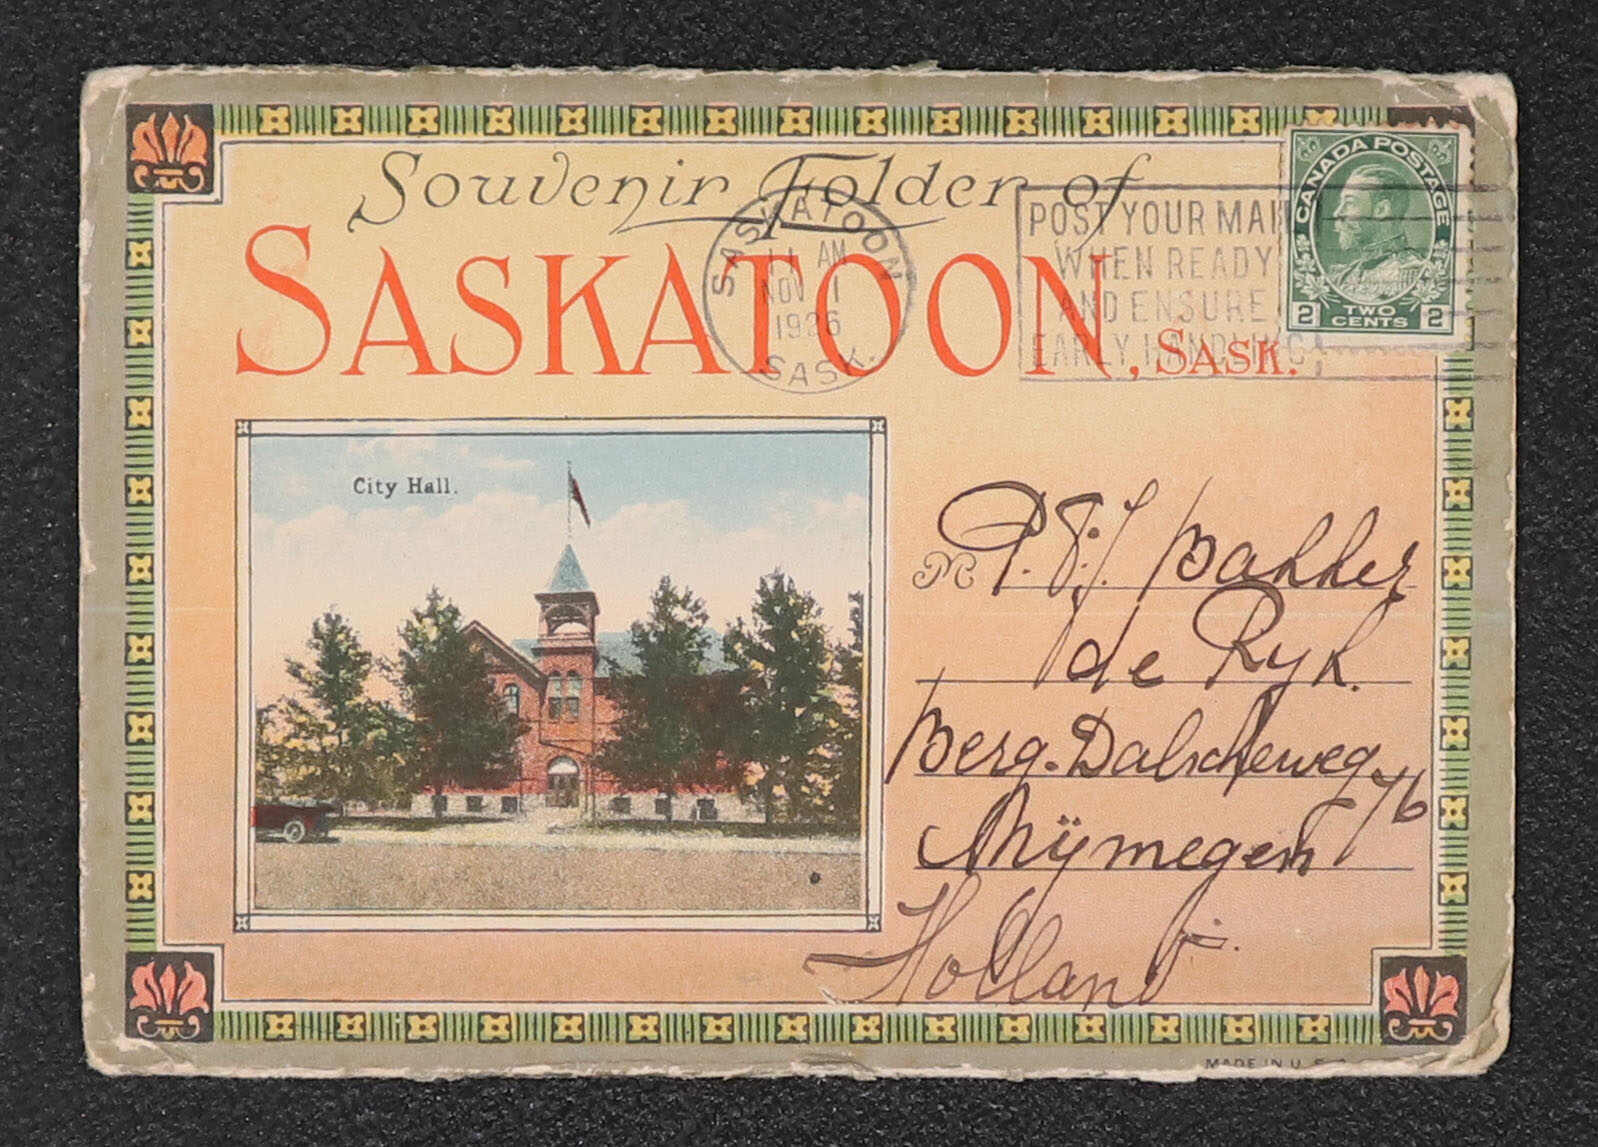 Souvenir Folder of
SASKATOON, SASK.
SASKATOON
11 AM
NOV 1
1926
SASK.
POST YOUR MAIL
WHEN READY
AND ENSURE
EARLY HANDLING
CANADA POSTAGE
2 TWO CENTS 2
City Hall.
M P. J. J. Bakker
de Ryk.
Berg. Dalscheweg 76
Nijmegen
Holland.
MADE IN U. S. A.